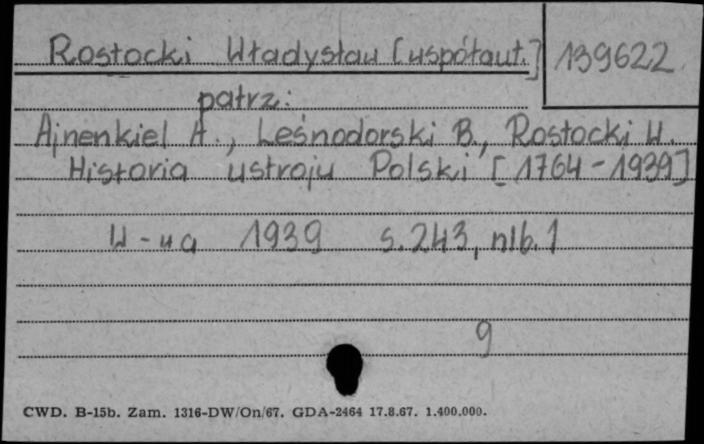 Rostocki Władysław [współaut.] 139622.
patrz:
Ajnenkiel A., Leśnodorski B., Rostocki W.
Historia ustroju Polski [1764-1939]
W-wa 1939 s.243, nlb.1
9
CWD. B-15b. Zam. 1316-DW/On/67. GDA-2464 17.8.67. 1.400.000.